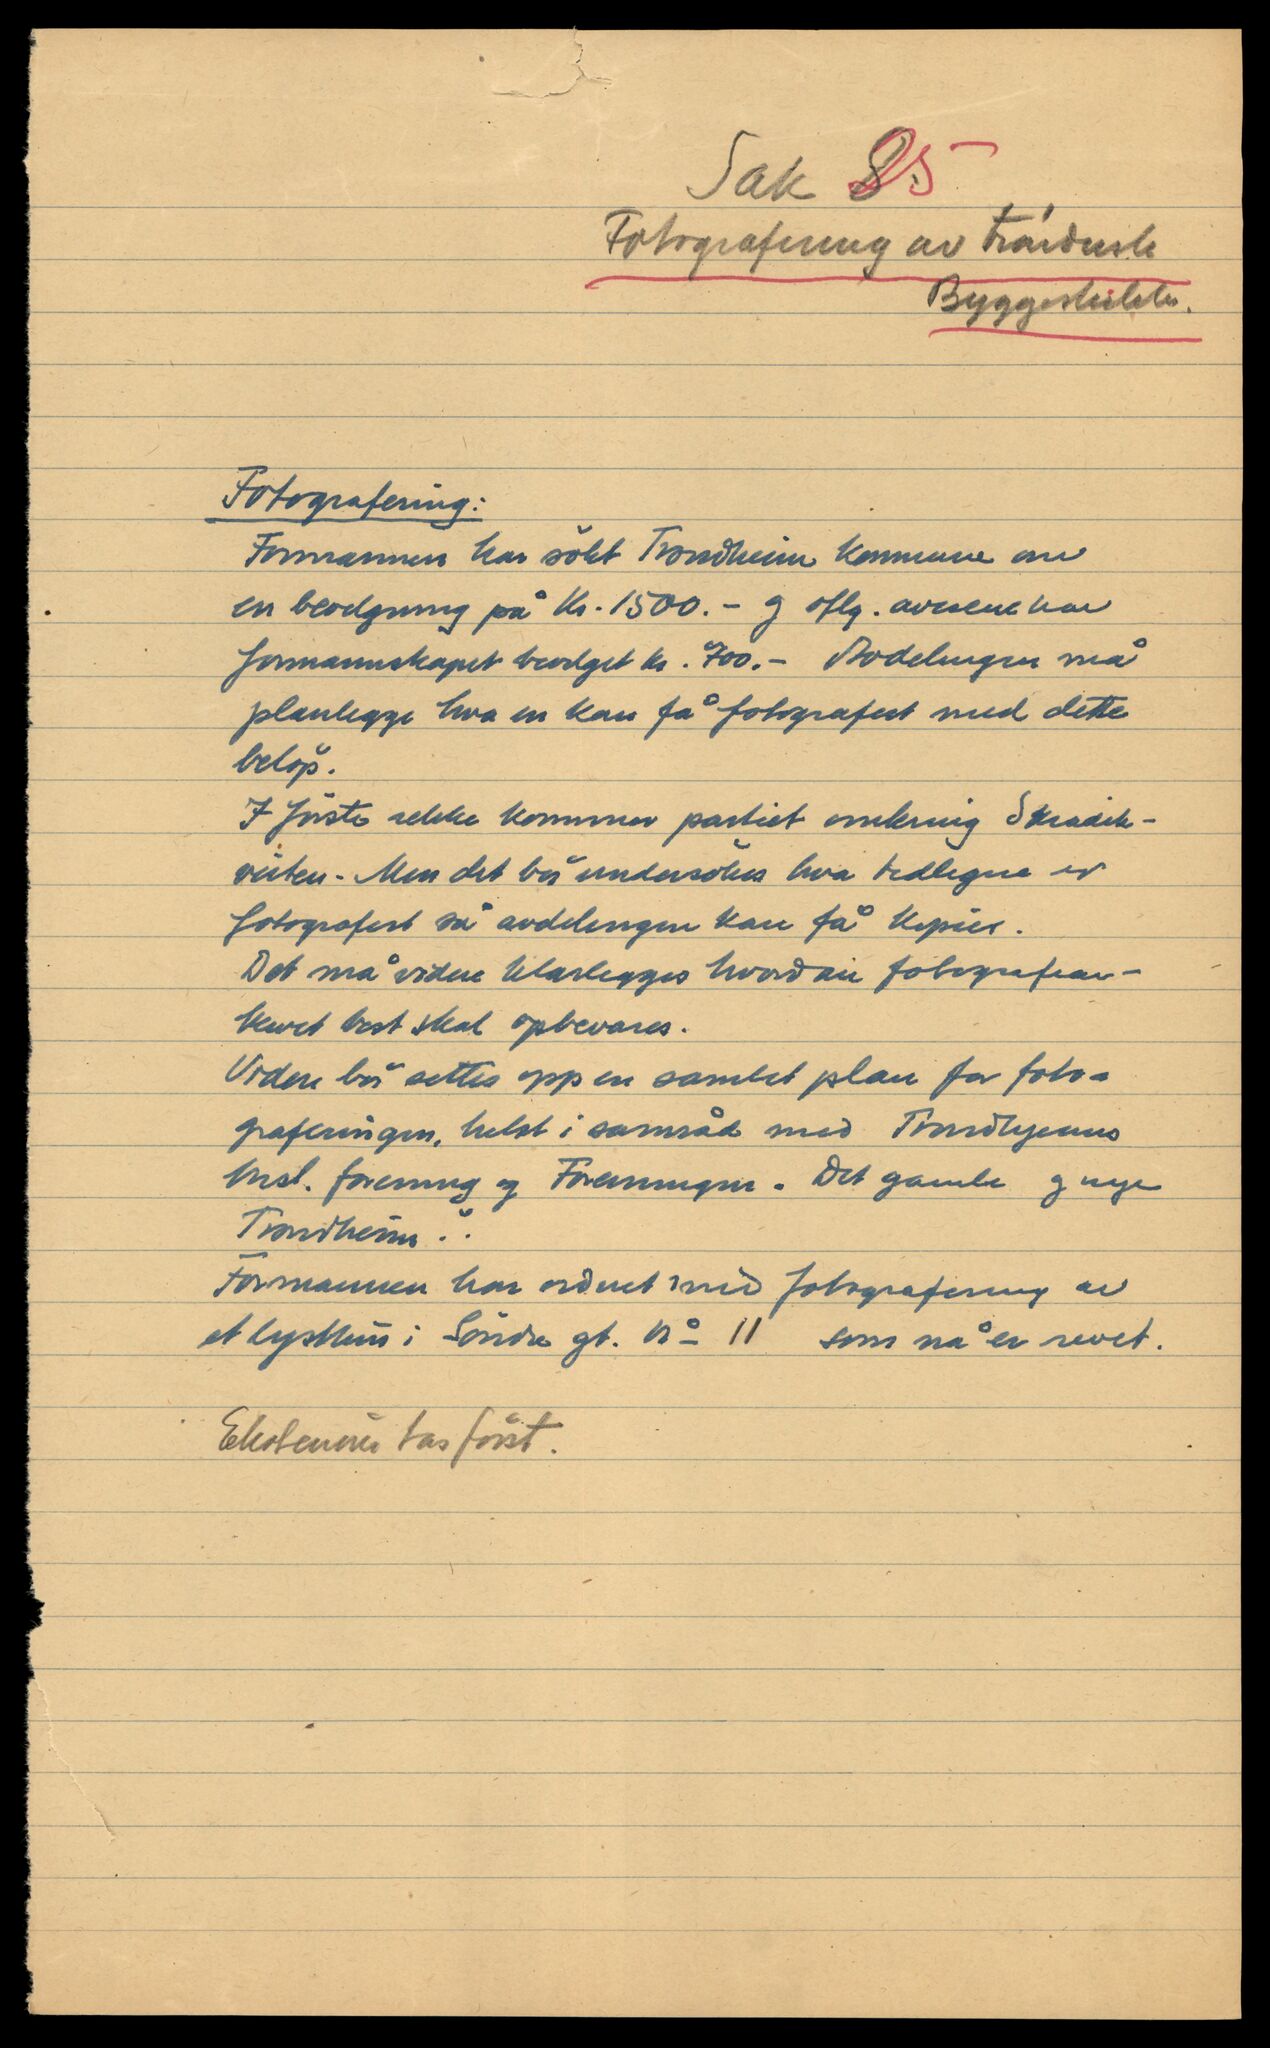 Sak 85
Fotografering av trønderske
Byggeskikker.
Fotografering:
Formannen har søkt Trondheim kommune om
en bevilgning på kr. 1500.- og iflg. avisene har
formannskapet bevilget kr. 700.- Avdelingen må
planlegge hva en kan få fotografert med dette
beløp.
I første rekke kommer partiet omkring
veiten. Men det bør undersøkes hva tidligere er
fotografert så avdelingen kan få kopier.
Det må videre klarlegges hvordan fotografiar-
kivet best skal opbevares.
Videre bør settes opp en samlet plan for foto-
graferingen, helst i samråd med Trondhjems
hist. forening og Foreningen. Det gamle og nye
Trondheim.
Formannen har ordnet med fotografering av
et lysthus i Søndre gt. nå 11 som nå er revet.
tas først.